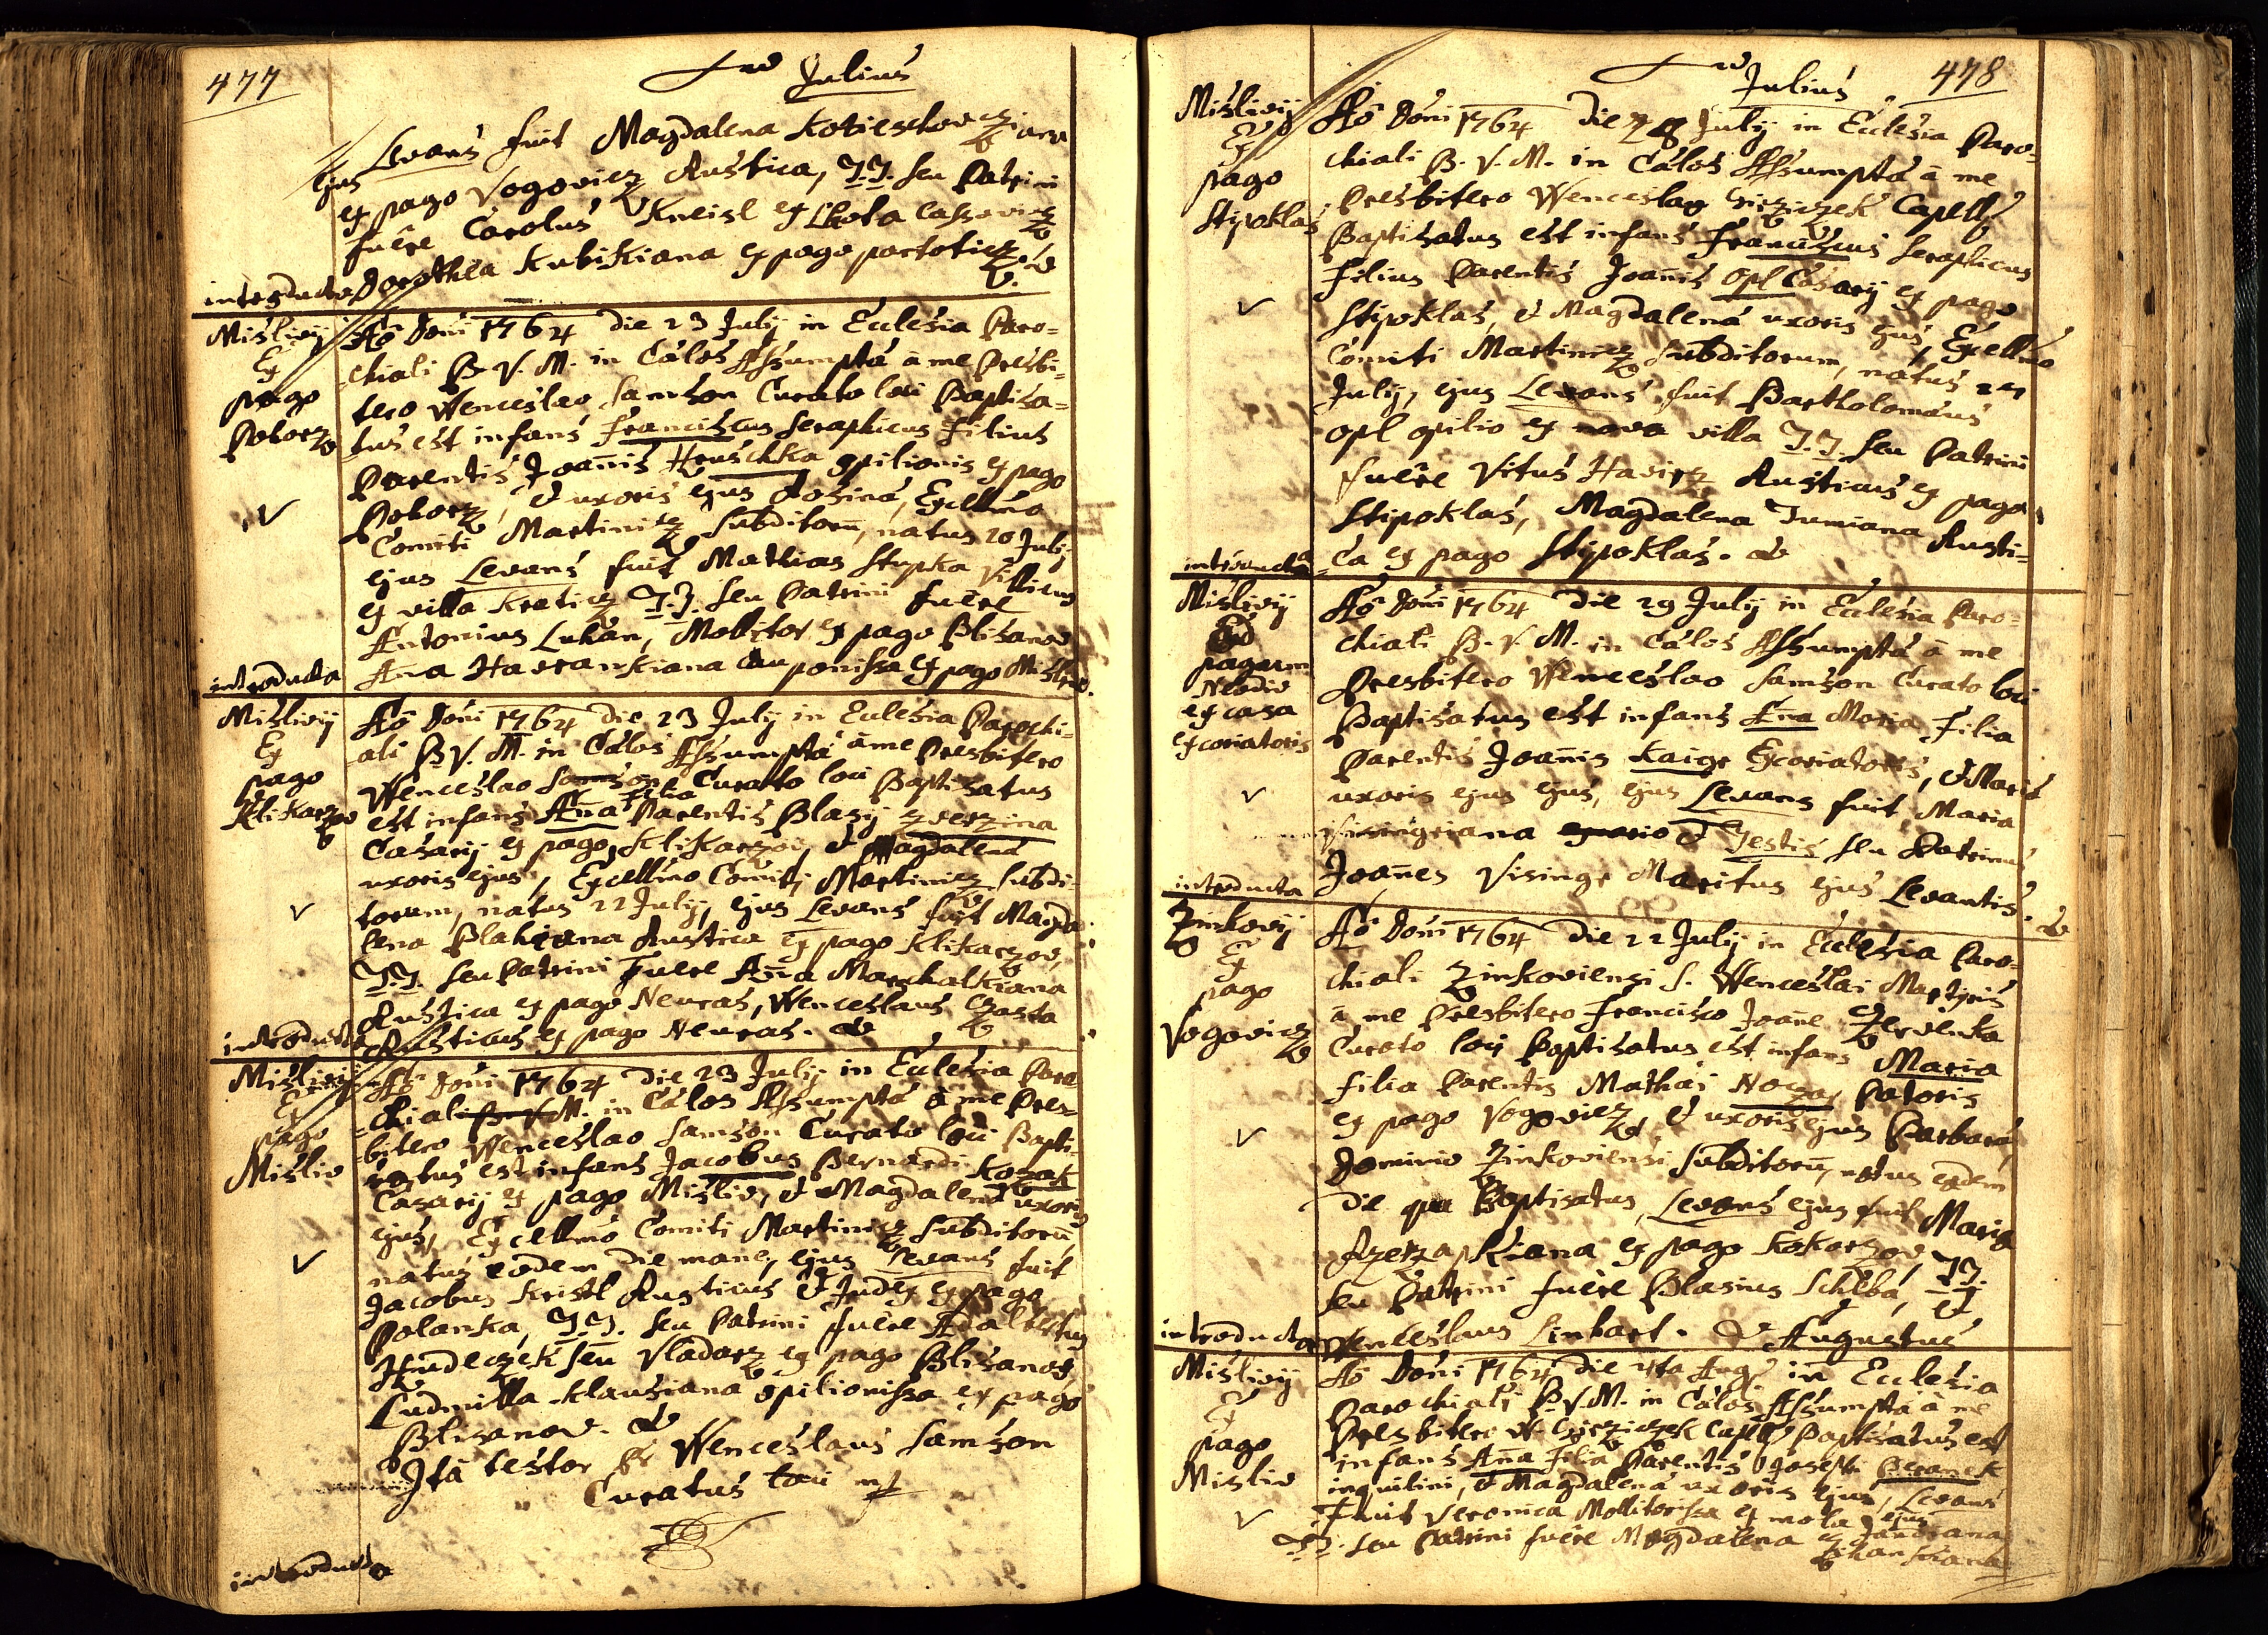 477
Julius
ejus Levans fuit Magdalena
ex pago Vogovicz Rustica, T.T. seu Patrini
fuêre Carolus Kneisl ex Lhota
introducta Dorothea Kubikiana ex pago
Mislivij
Ex
pago
Poborz
Aô Doñi 1764 die 23 July in Ecclesia Paro=
chiali B. V. M. in Cælos Assumptæ â me Presbi=
tero Wenceslao Samson Curato loci Baptisa=
tus est infans Franciscus Seraphicus Filius
Parentis Joañis Hruschka opilionis ex pago
Poborz, & uxoris ejus Rosinæ, Excellmo
Comiti Martinicz Subditorū, natus 20 July
ejus Levans fuit Mathias Stupka Villicus
ex villa Kraticz T.T. seu Patrini fuêre
Antonius Lukan, Mollitor ex pago Blisanov
Aña Havrankiana Cauponissa ex pago Misliv.
introducta
Mislivij
Ex
pago
Klikarzov
Aô Doñi 1764 die 23 July in Ecclesia Parochi=
ali B. V. M. in Cælos Assumptæ â me Presbitero
Wenceslao Samson Curato loci Baptisatus
est infans Aña Filia Parentis Blasij zverzina
Casarij ex pago Klikarzov, & Magdalenæ
uxoris ejus, Excellmo Comiti Martinicz Subdi=
torum, natus 22 July, ejus Levans fuit Magda=
lena Blahovna Rustica ex pago Klikarzov,
T.T. seu Patrini Fuêre Aña Marchalkiana
Rustica ex pago Neuras, Wenceslaus Czasta
introducta Rusticus ex pago Neuras.
Mislivij
Ex
pago
Misliv
Aô Doñi 1764 die 23 July in Ecclesia Paro=
chiali B. V. M. in Cælos Assumptæ â me Pres=
bitero Wenceslao Samson Curato loci Bapti=
satus est infans Jacobus Bernardi Kozak
Casarij ex pago Misliv, & Magdalenæ uxoris
ejus, Excellmo Comiti Martinicz Subditorū
natus eodem die mane, ejus Levans fuit
Jacobus Kristl Rusticus & Judex ex pago
Polanka, T.T. seu Patrini fuêre Adalbertus
Hudeczek seu Vladarz ex pago Blisanov,
Ludmilla Klausiana opilionissa ex pago
Blisanov.
Ita testor Pr Wenceslaus Samson
Curatus loci mp
introducta
478
Julius
Mislivij
Ex
pago
Stipoklas
Aô Doñi 1764 die 28 July in Ecclesia Paro=
chiali B. V. M. in Cælos Assumptæ â me
Presbitero Wenceslao Capell:
Baptisatus est infans Franciscus Seraphicus
Filius Parentis Joañis Opl Casarij ex pago
Stipoklas, & Magdalenæ uxoris ejus, Excellmo
Comiti Martinicz Subditorum, natus
July, ejus Levans fuit Bartholomæus
Opl opilio ex nova villa T.T. seu Patrini
fuêre Vitus Havirz Rusticus ex pago
Stipoklas, Magdalena Tumiana Rusti=
ca ex pago Stipoklas.
introducta
Mislivij
Ad
pagum
Neodiv
ex casa
excoriatoris
Aô Doñi 1764 die 29 July in Ecclesia Paro=
chiali B. V. M. in Cælos Assumptæ â me
Presbitero Wenceslao Samson Curato loci
Baptisatus est infans Aña Maria Filia
Parentis Joañis Kaigr Excoriatoris, & Mariæ
uxoris ejus ejus, ejus Levans fuit Maria
Visingriana & Testis seu Patrinus
Joañes Visingr Maritus ejus Levantis.
introducta
Zinkovij
Ex
pago
Vogovicz
Aô Doñi 1764 die 22 July in Ecclesia Paro=
chiali Zinkoviensi S. Wenceslai Martyris
â me Presbitero Francisco Joañe Czervenka
Curato loci Baptisatus est infans Maria
Filia Parentis Mathæi Patoris
ex pago Vogovicz, & uxoris ejus Barbaræ,
Dominio Zinkoviensi Subditorū, natus eodem
die qua Baptisatus, Levans ejus fuit Maria
ex pago Kokorzov, T.T.
seu Patrini fuêre Blasius Schlba, &
Wenceslaus Linhart.
introducta
Augustus
Mislivij
Ex
pago
Misliv
Aô Doñi 1764 die 4ta Aug: in Ecclesia
Parochiali B. V. M. in Cælos Assumptæ â me
Presbitero W. Capell: Baptisatus est
infans Aña Filia Parentis Josephi Beranek
inquilini, & Magdalenæ uxoris ejus, Levans
Fuit Veronica Mollitorissa ex mola
T.T. seu Patrini fuêre Magdalena